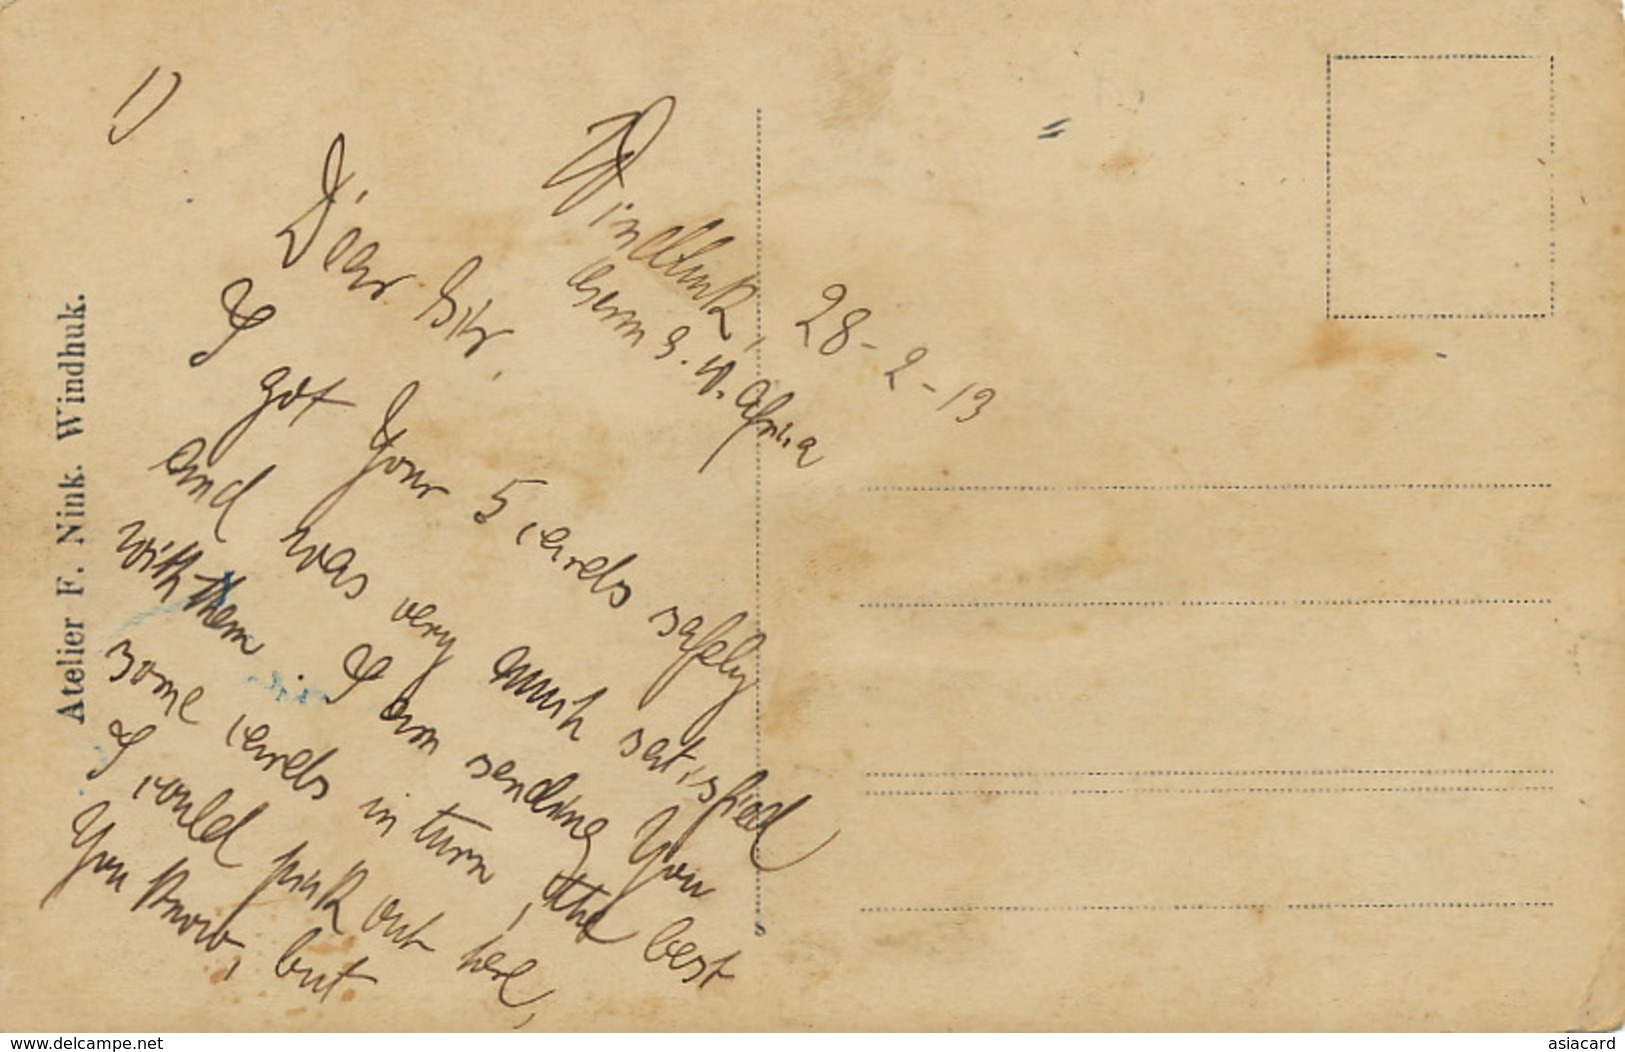 1)
Windhuk, 28-2-13
Germ S. W. Africa
Dear Sir,
I got Your 5 cards safely
and was very much satisfied
with them. I am sending You
some cards in turn, the best
I could pick out here,
You know, but
Atelier F. Nink. Windhuk.
www.delcampe.net
asiacard